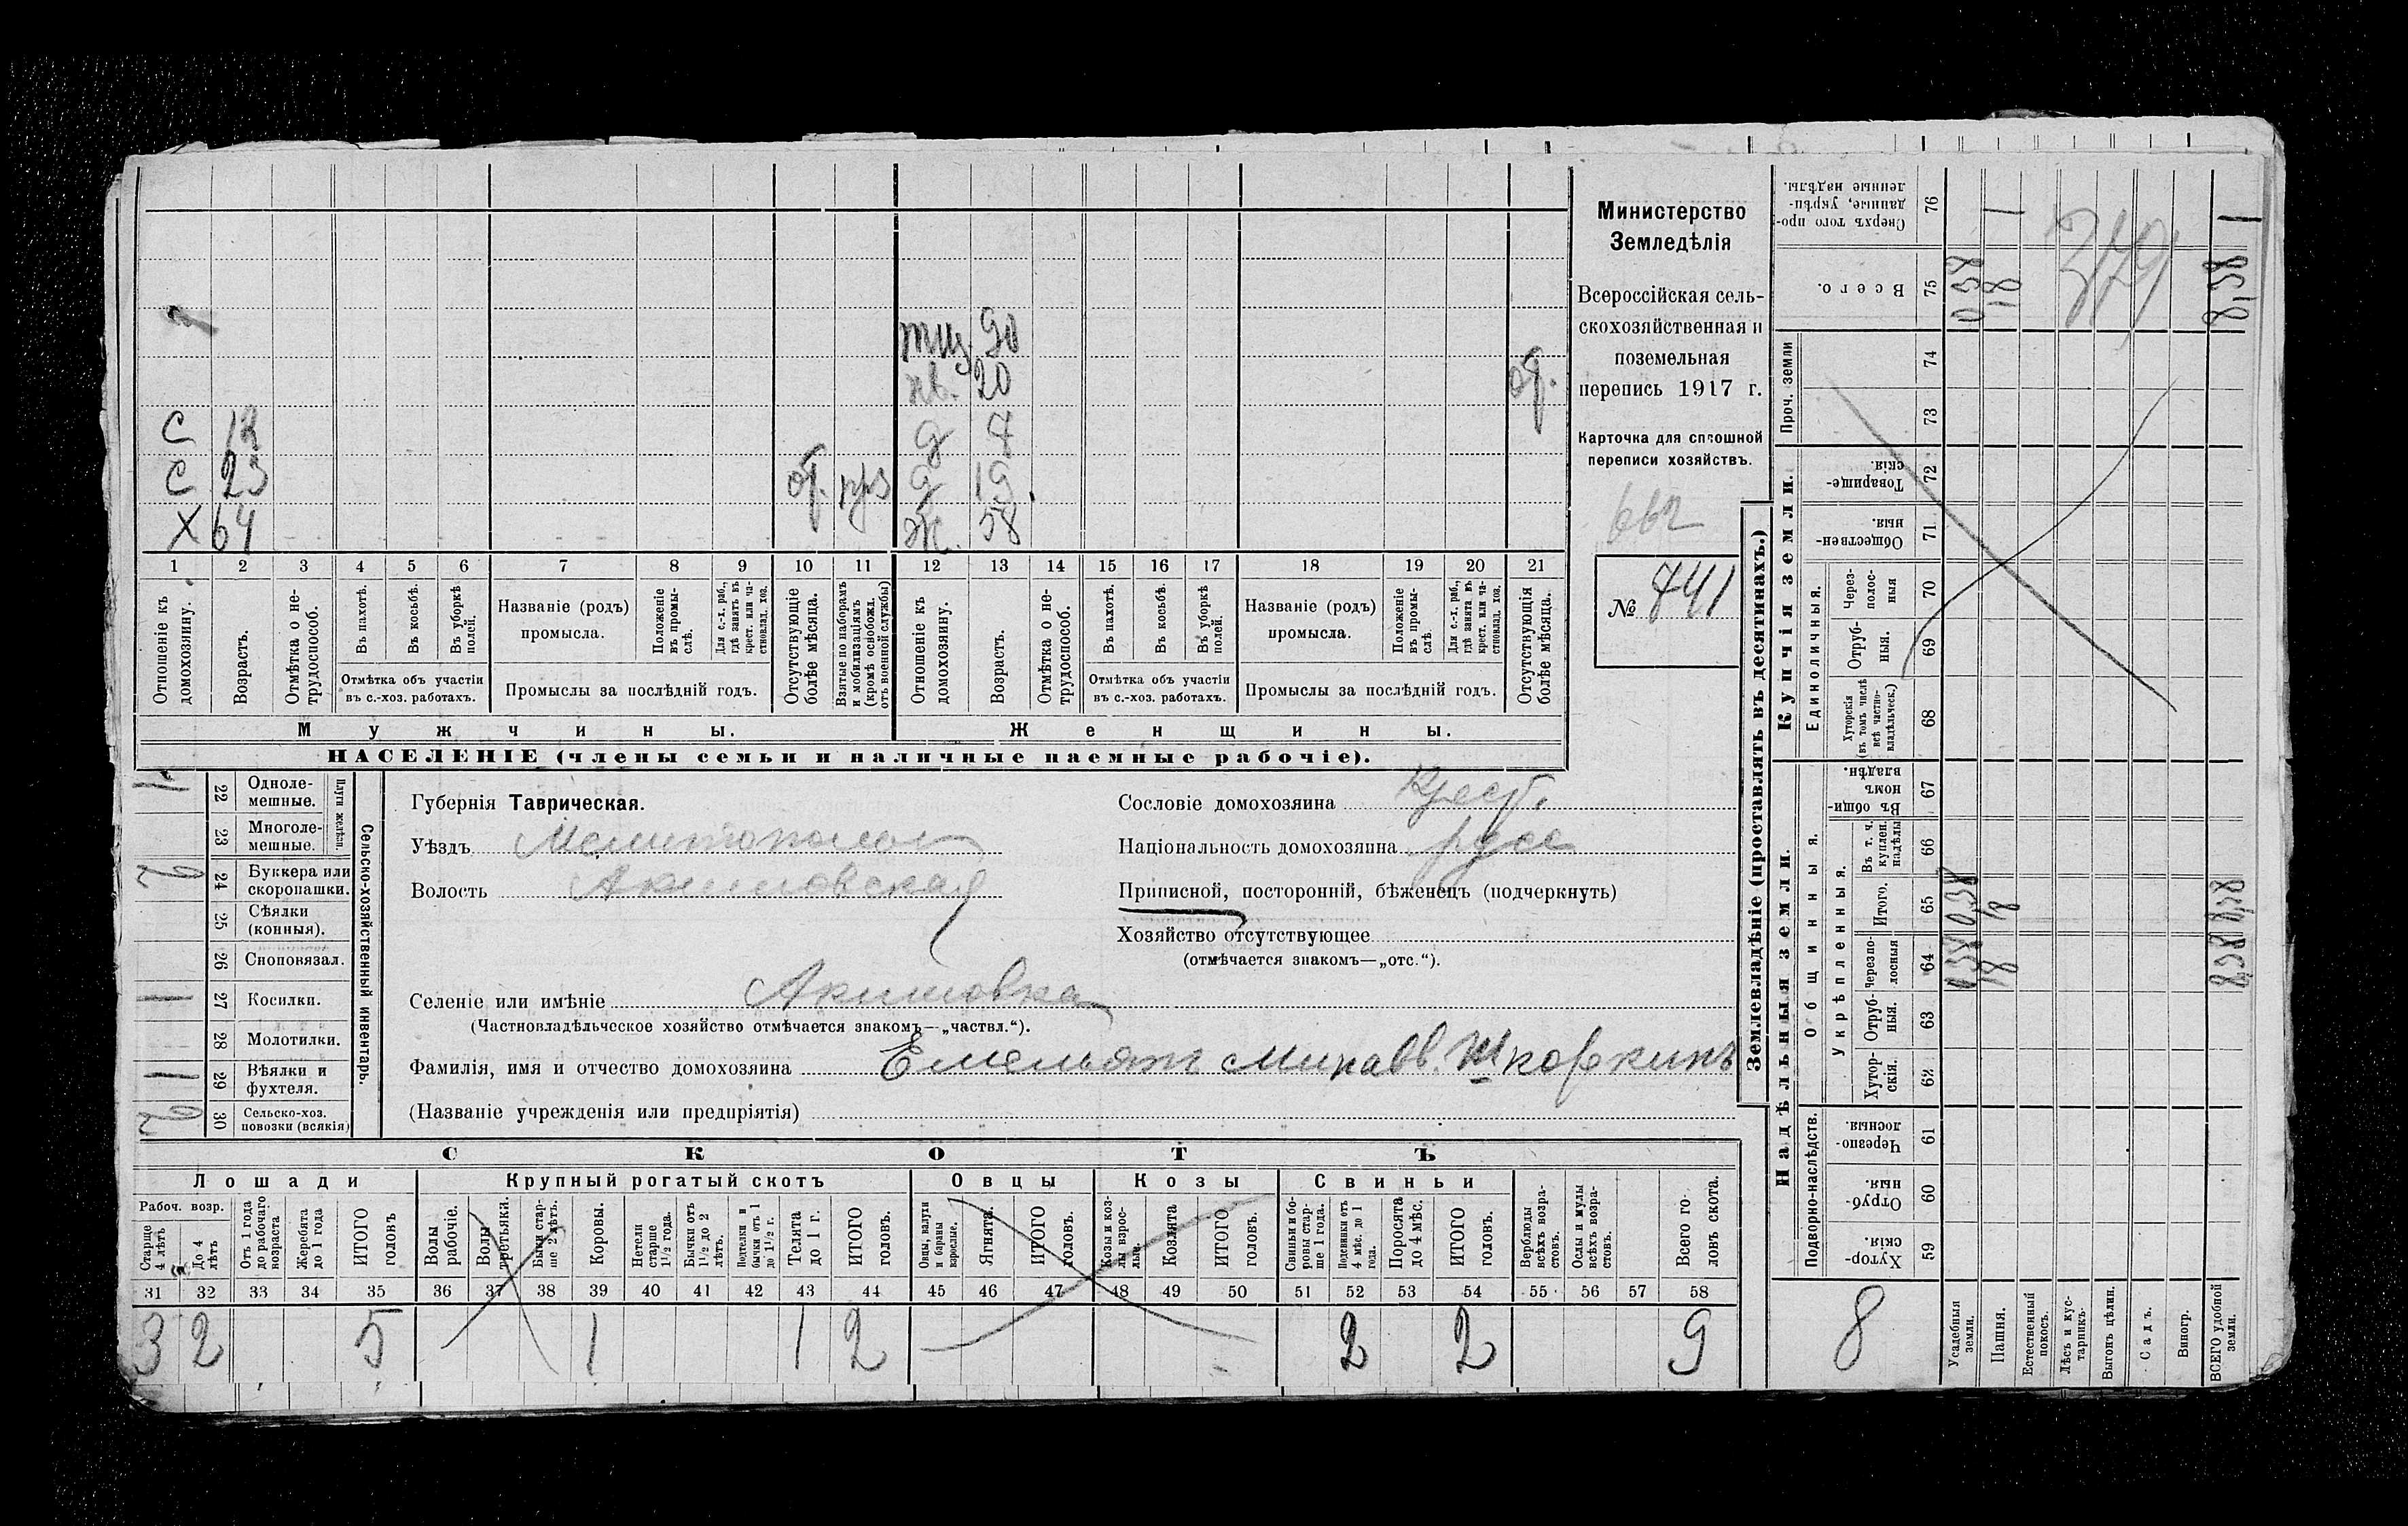 С 23 об. Д 19
Х 64 Ж. 58
1 2 3 4 5 6 7 8 9 10 11 12 13 14 15 16 17 18 19 20 21
Отношеніе къ домохозяину.
Возрастъ.
Отмѣтка о не-трудоспособ.
Въ пахотѣ.
Въ косьбѣ.
Въ уборкѣ полей.
Отмѣтка объ участіи
въ с.-хоз. работахъ.
Названіе (родъ)
промысла.
Положеніе въ промы-слѣ.
Для с.-х. раб., гдѣ занятъ въ крест. или ча-стновлад. хоз.
Промыслы за послѣдній годъ.
Отсутствующіе болѣе мѣсяца.
Взятые по наборамъ и мобилизаціямъ (кромѣ освобожд. отъ военной службы)
Отношеніе къ домохозяину.
Возрастъ.
Отмѣтка о не-трудоспособ.
Въ пахотѣ.
Въ косьбѣ.
Въ уборкѣ полей.
Отмѣтка объ участіи
въ с.-хоз. работахъ.
Названіе (родъ)
промысла.
Положеніе въ промы-слѣ.
Для с.-х. раб., гдѣ занята въ крест. или ча-стновлад. хоз.
Промыслы за послѣдній годъ.
Отсутствующія болѣе мѣсяца.
Мужчины.
Женщины.
НАСЕЛЕНІЕ (члены семьи и наличные наемные рабочіе).
Министерство
Земледѣлія
Всероссійская сель-
скохозяйственная и
поземельная
перепись 1917 г.
Карточка для сплошной
переписи хозяйствъ.
662
№ 741
Сельско-хозяйственный инвентарь.
Плуги желѣзн.
22 Одноле-мешные. 1
23 Многоле-мешные.
24 Буккера или скоропашки. 2
25 Сѣялки (конныя).
26 Сноповязал.
27 Косилки. 1
28 Молотилки.
29 Вѣялки и фухтеля. 1
30 Сельско-хоз. повозки (всякія) 2
Губернія Таврическая.
Уѣздъ
Волость Акимовская
Селеніе или имѣніе Акимовка
(Частновладѣльческое хозяйство отмѣчается знакомъ—„частвл.“).
Фамилія, имя и отчество домохозяина Емельянъ
(Названіе учрежденія или предпріятія)
Сословіе домохозяина Крест.
Національность домохозяина русс
Приписной, посторонній, бѣженецъ (подчеркнуть)
Хозяйство отсутствующее
(отмѣчается знакомъ—„отс.“).
СКОТЪ
Лошади
Рабоч. возр.
Старше 4 лѣтъ
До 4 лѣтъ
Отъ 1 года до рабочаго возраста
Жеребята до 1 года
ИТОГО головъ
Крупный рогатый скотъ
Волы рабочіе.
Волы третьяки.
Быки стар-ше 2 лѣтъ.
Коровы.
Нетели старше 1½ года.
Бычки отъ 1½ до 2 лѣтъ.
Подтелки и бычки отъ 1 до 1½ г.
Телята до 1 г.
ИТОГО головъ.
Овцы
Овцы, валухи и бараны взрослые.
Ягнята.
ИТОГО головъ.
Козы
Козы и коз-лы взрос-лые.
Козлята
ИТОГО головъ.
Свиньи
Свиньи и бо-ровы стар-ше 1 года.
Подсвинки отъ 4 мѣс. до 1 года.
Поросята до 4 мѣс.
ИТОГО головъ.
Верблюды всѣхъ возра-стовъ.
Ослы и мулы всѣхъ возра-стовъ.
Всего го-ловъ скота.
31 32 33 34 35 36 37 38 39 40 41 42 43 44 45 46 47 48 49 50 51 52 53 54 55 56 57 58
3 2 5 1 1 2 2 2 9
Землевладѣніе (проставлять въ десятинахъ.)
Надѣльныя земли.
Подворно-наслѣдств.
Хутор-скія. 59
Отруб-ныя. 60
Черезпо-лосныя. 61
Общинныя.
Укрѣпленныя.
Хутор-скія. 62
Отруб-ныя. 63
Черезпо-лосныя 64
Итого. 65
Въ т. ч. куплен. надѣлы 66
Въ общи-номъ владѣн. 67
Купчія земли.
Единоличныя.
Хуторскія (въ томъ числѣ всѣ частно-владѣльческ.) 68
Отруб-ныя. 69
Через-полос-ныя 70
Обществен-ныя. 71
Товарище-скія. 72
Проч. земли
73 74
Всего. 75
Сверхъ того про-данные, укрѣп-ленные надѣлы. 76
8
Усадебныя земли.
Пашня.
Естественный покосъ.
Лѣсъ и кус-тарникъ.
Выгонъ цѣлин.
Садъ.
Виногр.
ВСЕГО удобной земли.